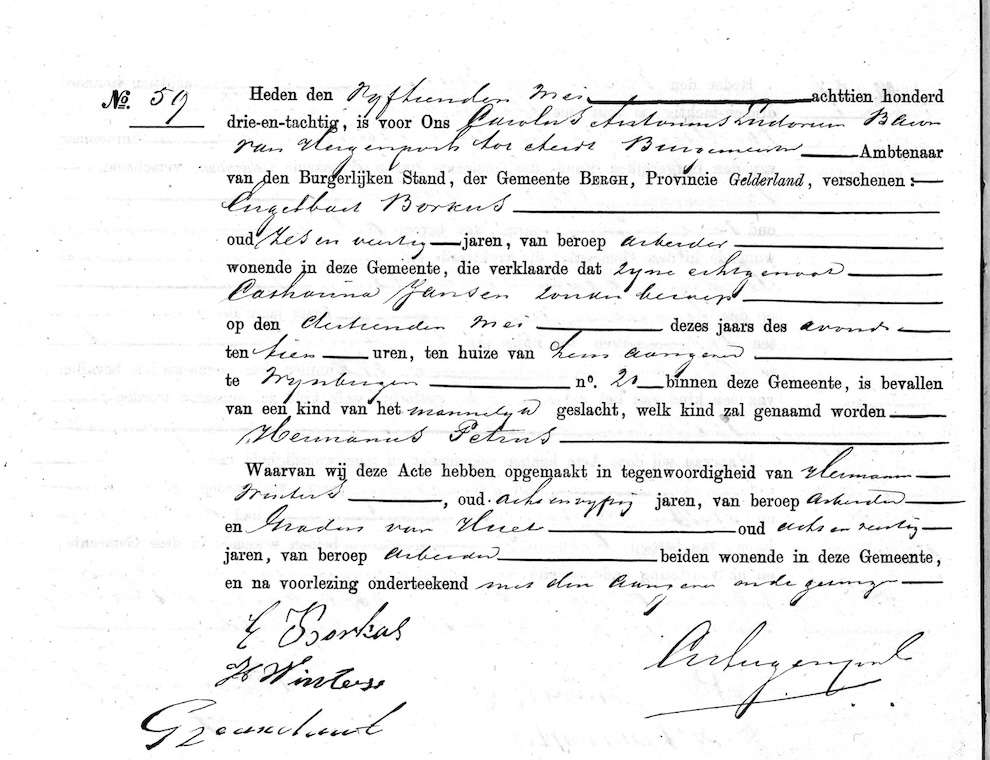 No. 59 Heden den Vyftienden Mei achttien honderd
drie-en-tachtig, is voor Ons Carolus Antonius Ludovicus Baron
van Hugenpoth tot Aerdt Burgemeester Ambtenaar
van den Burgerlijken Stand, der Gemeente BERGH, Provincie Gelderland, verschenen:
Engelbart Borkus
oud zes en veertig jaren, van beroep arbeider
wonende in deze Gemeente, die verklaarde dat zyne echtgenoot
Catharina Jansen zonder beroep
op den dertienden Mei dezes jaars des avonds
ten tien uren, ten huize van hem aangever
te Wynbergen no. 20 binnen deze Gemeente, is bevallen
van een kind van het mannelyk geslacht, welk kind zal genaamd worden
Hermanus Petrus
Waarvan wij deze Acte hebben opgemaakt in tegenwoordigheid van Hermann
Winters, oud achtenvyftig jaren, van beroep arbeider
en Gradus van Huet oud acht en veertig
jaren, van beroep arbeider beiden wonende in deze Gemeente,
en na voorlezing onderteekend met den aangever en de getuigen
E Borkas
H Winters